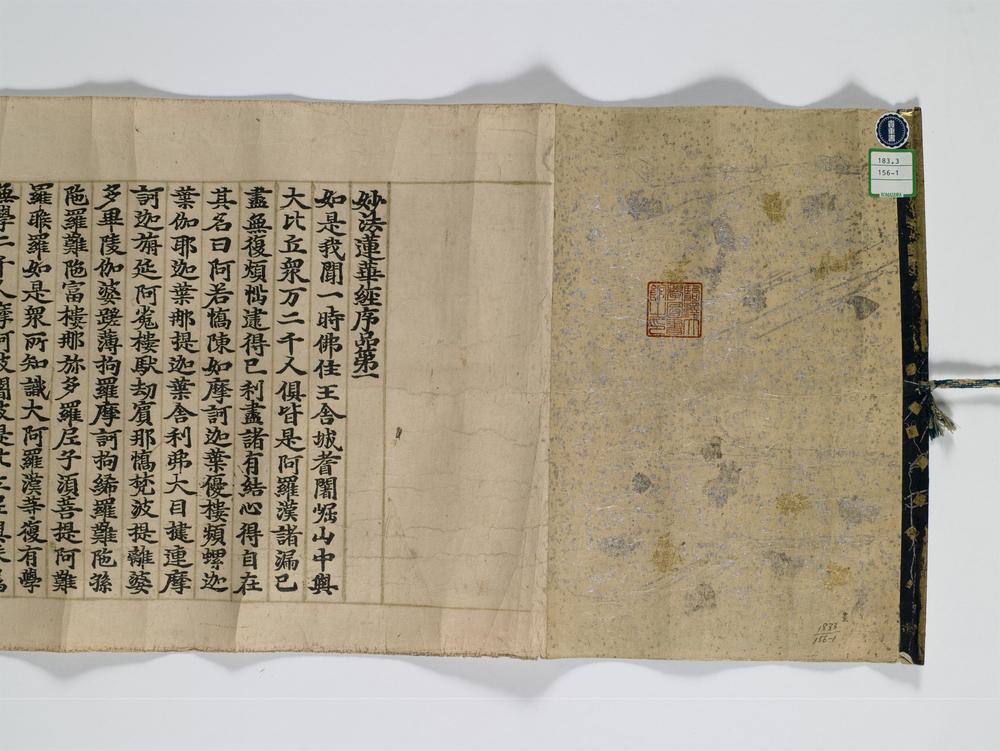 貴重書
183.3
156-1
駒澤大
學圖書
館之印
1833
156-1
妙法蓮華經序品第一
如是我聞一時佛住王舍城耆闍崛山中與
大比丘衆万二千人俱皆是阿羅漢諸漏已
盡無復煩惱逮得己利盡諸有結心得自在
其名曰阿若憍陳如摩訶迦葉優樓頻螺迦
葉伽耶迦葉那提迦葉舍利弗大目揵連摩
訶迦旃延阿㝹樓馱劫賓那憍梵波提離婆
多畢陵伽婆蹉薄拘羅摩訶拘絺羅難陁孫
陁羅難陁富樓那弥多羅尼子須菩提阿難
羅睺羅如是衆所知識大阿羅漢等復有學